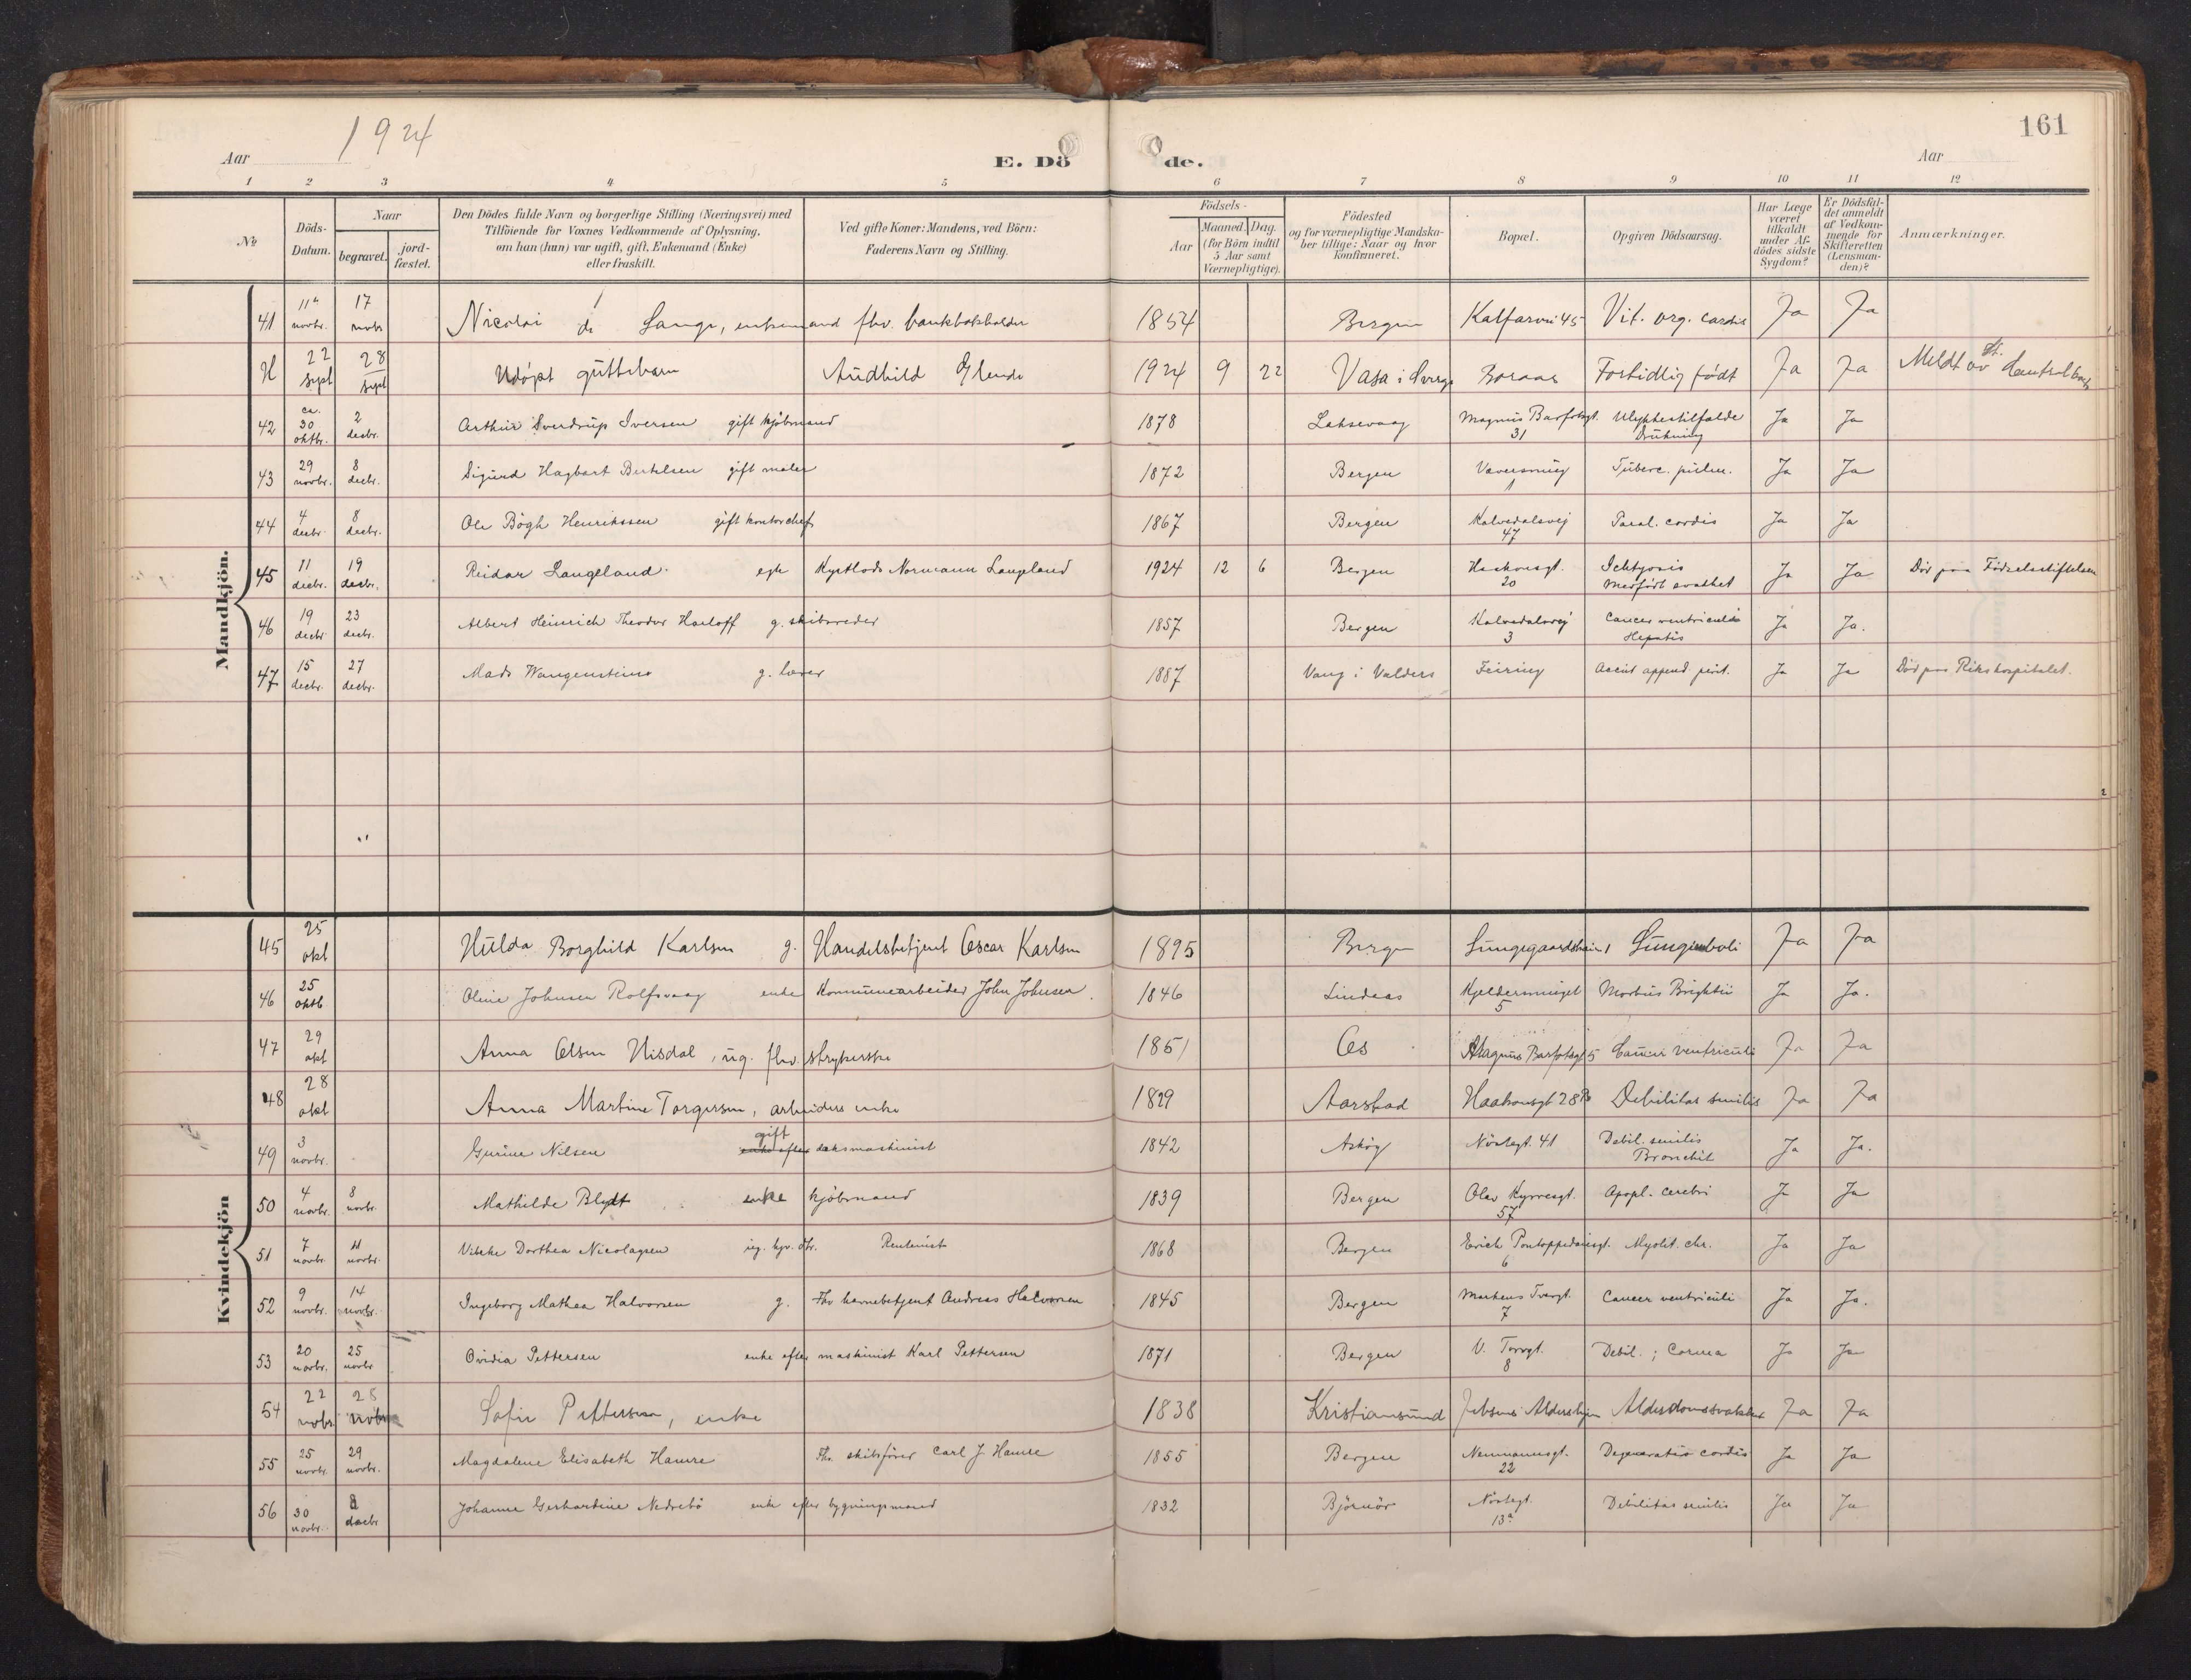 1924
161
Aar
E. Dö
de.
Aar
1 2 3 4 5 6 7 8 9 10 11 12
No
Döds-Datum.
Naar
begravet.
jord-fæstet.
Den Dödes fulde Navn og borgerlige Stilling (Næringsvei) med
Tilföiende for Voxnes Vedkommende af Oplysning,
om han (hun) var ugift, gift, Enkemand (Enke)
eller fraskilt.
Ved gifte Koner: Mandens, ved Börn:
Faderens Navn og Stilling.
Födsels-
Aar
Maaned. Dag.
(for Börn indtil
5 Aar samt
Værnepligtige).
Födested
og for værnepligtige Mandska-
ber tillige: Naar og hvor
konfirmeret.
Bopæl.
Opgiven Dödsaarsag.
Har Læge
været
tilkaldt
under Af-
dödes sidste
Sygdom?
Er Dödsfal-
det anmeldt
af Vedkom-
mende for
Skifteretten
(Lensman-
den)?
Anmærkninger.
Mandkjön.
41 11te novbr. 17 novbr Nicolai de Lange, enkemand fhv. bankbokholder 1854 Bergen Kalfarvei 45 Vit. org. cordis Ja Ja
22 sept 28 sept Udöpt guttebarn Audhild Glende 1924 9 22 Vasa i Sverge Boraas Fortidlig födt Ja Ja Meldt av St. Centralbyr
42 ca. 30 oktbr. 2 decbr. Arthur Sverdrup Iversen gift kjöbmand 1878 Laksevaag Magnus Barfotsgt. 31 Ulykkestilfælde Drukning Ja Ja
43 29 novbr. 8 decbr. Sigurd Hagbart Bertelsen gift maler 1872 Bergen 1 Tuberc. pulm. Ja Ja
44 4 decbr. 8 decbr. Ole Bögh Henrikssen gift kontorchef 1867 Bergen Kalvedalsvej 47 Paral. cordis Ja Ja
45 11 decbr. 19 decbr. Reidar Langeland. egte Normann Langeland 1924 12 6 Bergen Haakonsgt. 20 Ichtyosis medfödt svakhet Ja Ja Död paa Födselsstiftelsen
46 19 decbr 23 decbr. Albert Heinrich Theodor Harloff g. skibsreder 1857 Bergen Kalvedalsvej 3 Cancer ventriculi Hepatis Ja Ja.
47 15 decbr. 27 decbr. Mads Wangensteins g. lærer 1887 Vang i Valders Feiring Acut append. perit. Ja Ja Död paa Rikshospitalet.
Kvindekjön
45 25 okt Hulda Borghild Karlsen g. Handelsbetjent Oscar Karlsen 1895 Bergen Lungegaardskaien 1 Lungeemboli Ja Ja
46 25 oktb Oline Johnsen Rolfsvaag enke Kommunearbeider John Johnsen. 1846 Lindaas Kjeldersmuget 5 Morbus Brightii Ja Ja.
47 29 okt Anna Olsen Hisdal, ug. fhv. strykerske 1851 Os Magnus Barfotsgt 5 Cancer ventriculi Ja Ja
48 28 okt Anna Martine Torgersen, arbeiders enke 1829 Aarstad Haakonsgt 28 B Debilitas senilis Ja Ja
49 3 novbr. Gurine Nilsen enke efter gift dæksmaskinist 1842 Asköy Nöstegt. 41 Debil. senilis Bronchit Ja Ja.
50 4 novbr. 8 novbr. Mathilde Blydt enke kjöbmand 1839 Bergen Olav Kyrresgt. 57 Apopl. cerebri Ja Ja
51 7 novbr. 11 novbr. Vibeke Dorthea Nicolaysen ug. hjv. dtr. Rentenist 1868 Bergen Erich Pontoppidansgt. 6 Myelit. chr. Ja Ja
52 9 novbr. 14 novbr. Ingeborg Mathea Halvorsen g. Fhv havnebetjent Andreas Halvorsen 1845 Bergen Markens Tvergt. 7 Cancer ventriculi Ja Ja.
53 20 novbr. 25 novbr Ovidia Pettersen enke efter maskinist Karl Pettersen 1871 Bergen V. Torvgt. 8 Debil.; Corma Ja Ja
54 22 nvbr 28 nvbr Sofie Pettersen, enke 1838 Kristiansund Jebsens Aldershjem Alderdomssvakhet Ja Ja
55 25 novbr. 29 novbr. Magdalene Elisabeth Hamre Fhv. skibsförer Carl J. Hamre 1855 Bergen Neumannsgt. 22 Degeneratio cordis Ja Ja
56 30 novbr. 8 decbr Johanne Gerhardine Nedrebö enke efter bygningsmand 1832 Björnör Nöstegt. 13a Debilitas senilis Ja Ja